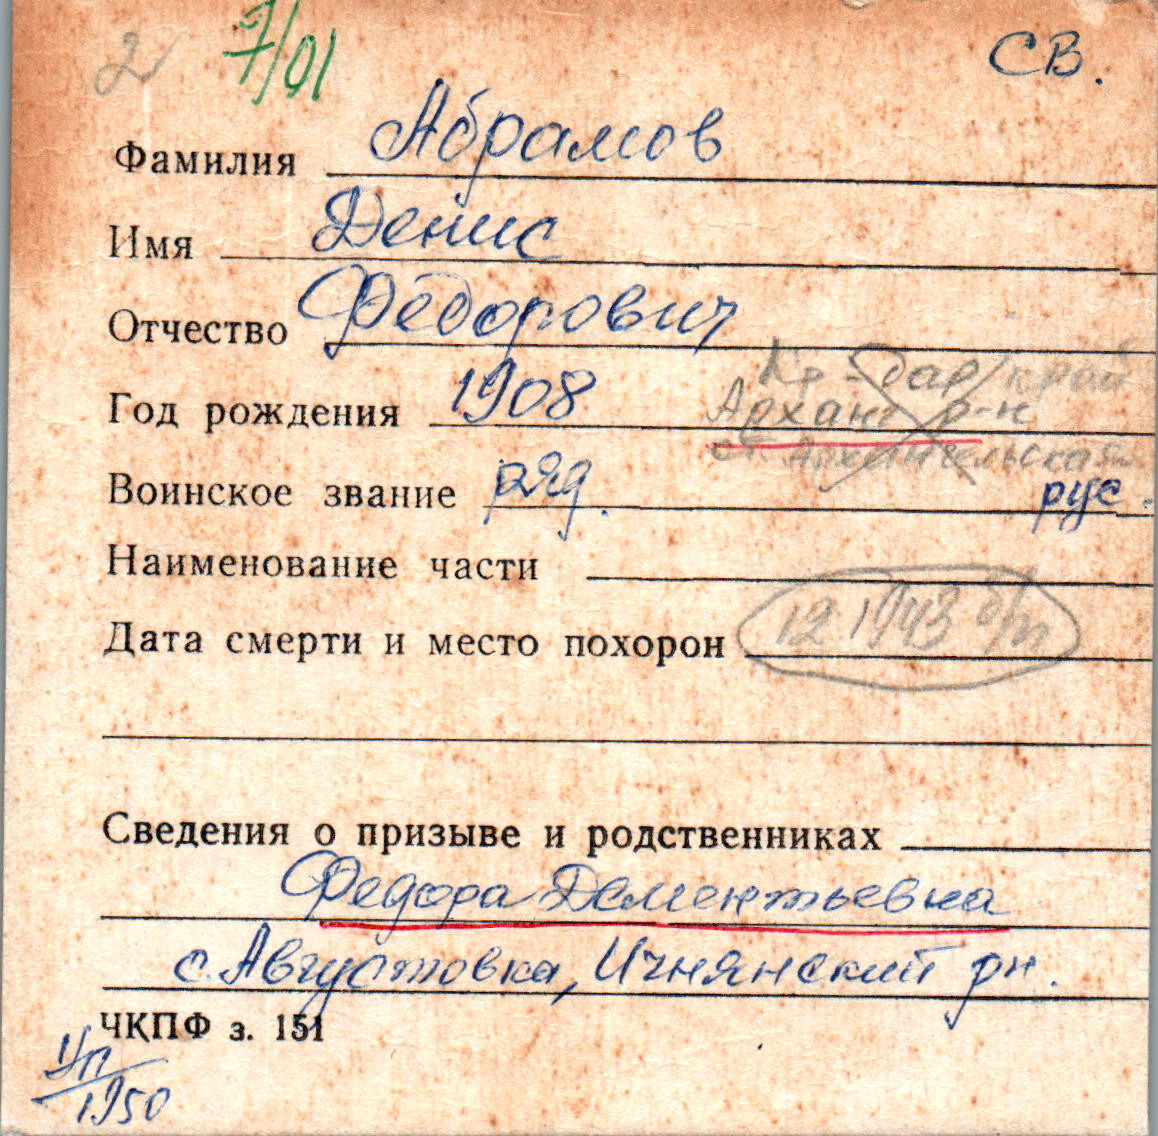 2 7/01 СВ.
Фамилия Абрамов
Имя Денис
Отчество Федорович
Кр-дар край
Год рождения 1908 Арханг р-н
ст. Архангельская
Воинское звание ряд. рус.
Наименование части
Дата смерти и место похорон 12 1943 б/п
Сведения о призыве и родственниках
Федора Дементьевна
с. Августовка, Ичнянский рн.
ЧКПФ з. 151
Уп
1950